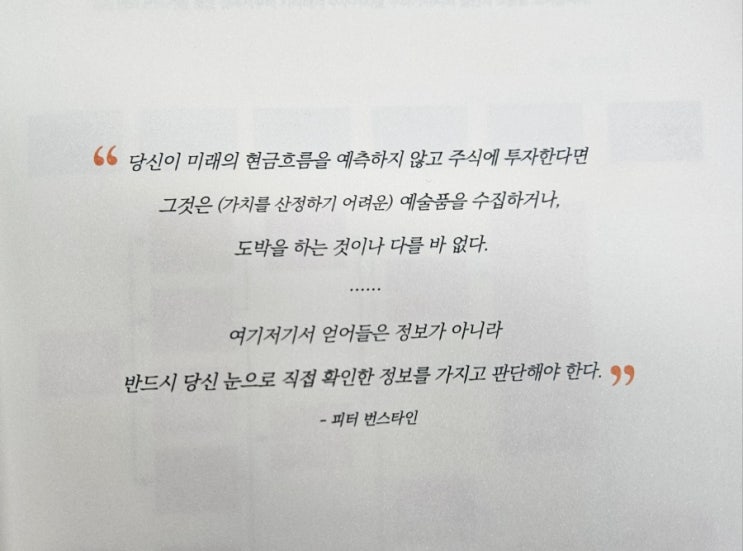 “ 당신이 미래의 현금흐름을 예측하지 않고 주식에 투자한다면
그것은 (가치를 산정하기 어려운) 예술품을 수집하거나,
도박을 하는 것이나 다를 바 없다.
......
여기저기서 얻어들은 정보가 아니라
반드시 당신 눈으로 직접 확인한 정보를 가지고 판단해야 한다. ”
- 피터 번스타인